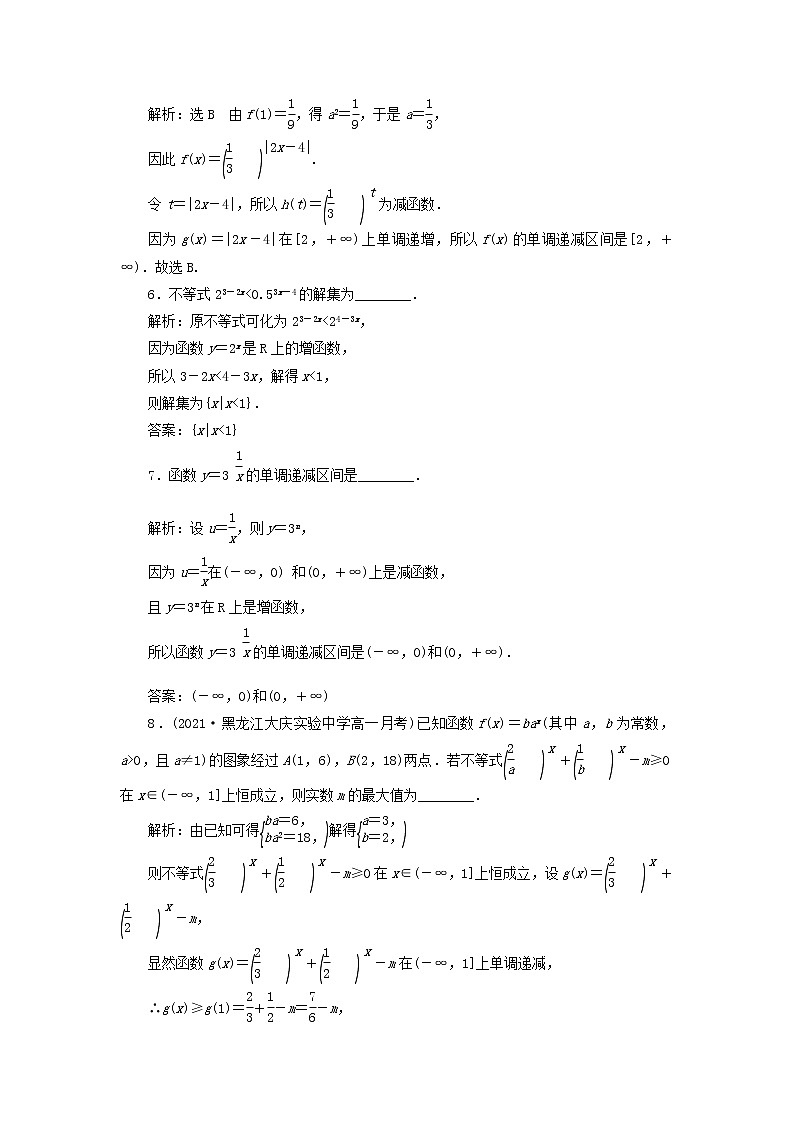 解析:选 B　由 f(1)=1/9,得 a²=1/9,于是 a=1/3,
因此 f(x)=(1/3)^|2x-4|.
令 t=|2x-4|,所以 h(t)=(1/3)^t 为减函数.
因为 g(x)=|2x-4|在[2,+∞)上单调递增,所以 f(x)的单调递减区间是[2,+
∞).故选 B.
6.不等式 2^(3-2x)<0.5^(3x-4)的解集为________.
解析:原不等式可化为 2^(3-2x)<2^(4-3x),
因为函数 y=2^x 是 R 上的增函数,
所以 3-2x<4-3x,解得 x<1,
则解集为{x|x<1}.
答案:{x|x<1}
7.函数 y=3^(1/x)的单调递减区间是________.
解析:设 u=1/x,则 y=3^u,
因为 u=1/x在(-∞,0) 和(0,+∞)上是减函数,
且 y=3^u 在 R 上是增函数,
所以函数 y=3^(1/x)的单调递减区间是(-∞,0)和(0,+∞).
答案:(-∞,0)和(0,+∞)
8.(2021·黑龙江大庆实验中学高一月考)已知函数 f(x)=ba^x(其中 a,b 为常数,
a>0,且 a≠1)的图象经过 A(1,6),B(2,18)两点.若不等式(2/a)^x+(1/b)^x-m≥0
在 x∈(-∞,1]上恒成立,则实数 m 的最大值为________.
解析:由已知可得{ba=6,ba²=18,}解得{a=3,b=2,}
则不等式(2/3)^x+(1/2)^x-m≥0 在 x∈(-∞,1]上恒成立,设 g(x)=(2/3)^x+
(1/2)^x-m,
显然函数 g(x)=(2/3)^x+(1/2)^x-m 在(-∞,1]上单调递减,
∴g(x)≥g(1)=2/3+1/2-m=7/6-m,